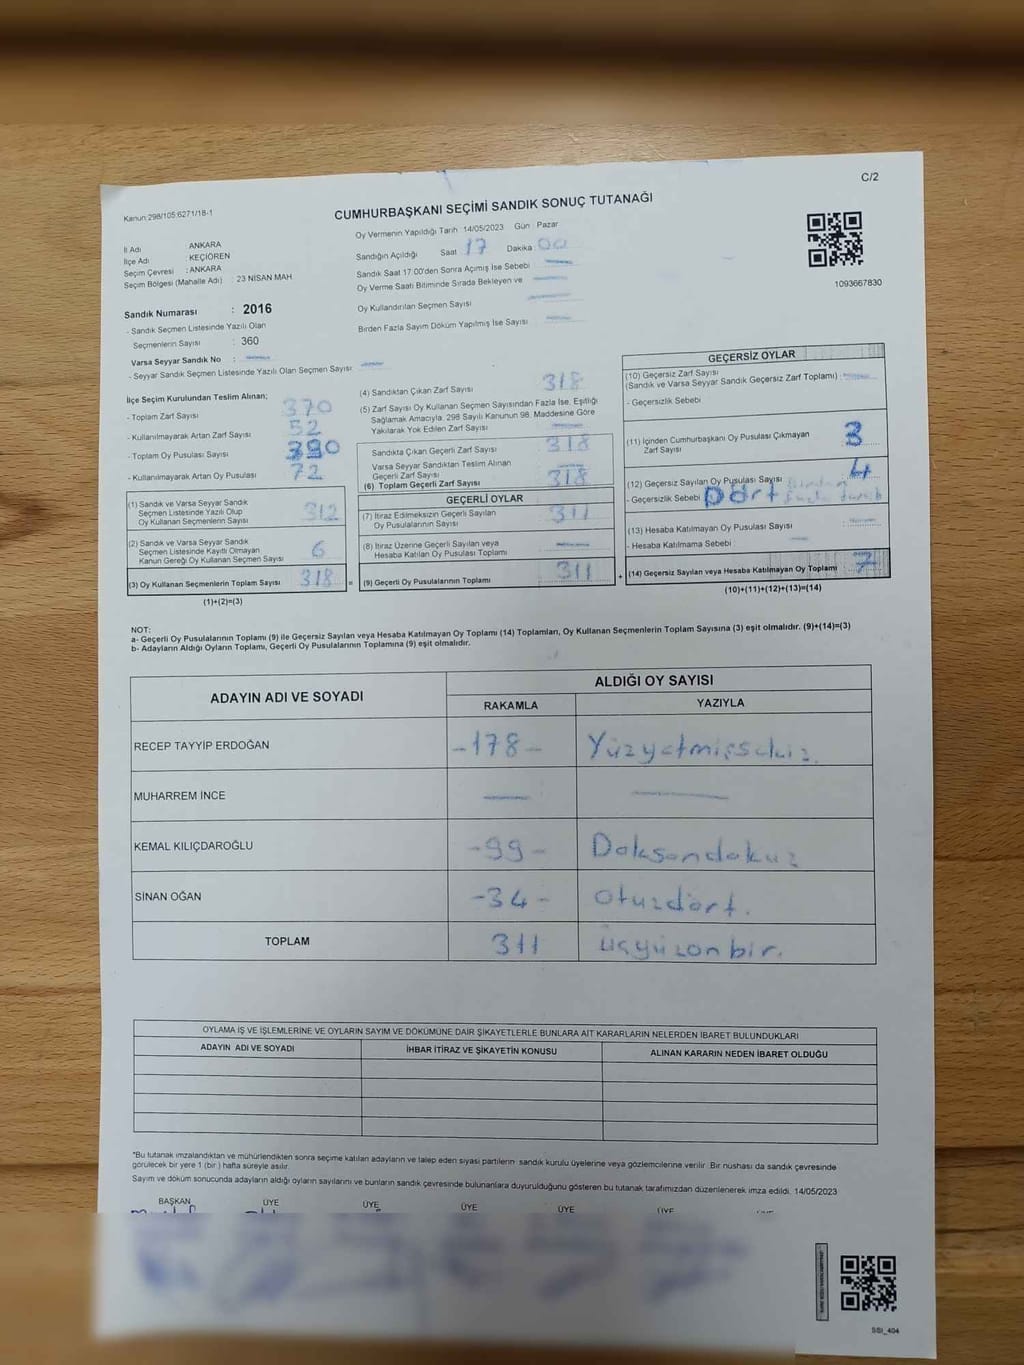 C/2
Kanun:298/105;6271/18-1
CUMHURBAŞKANI SEÇİMİ SANDIK SONUÇ TUTANAĞI
İl Adı : ANKARA
İlçe Adı : KEÇİÖREN
Seçim Çevresi : ANKARA
Seçim Bölgesi (Mahalle Adı) : 23 NİSAN MAH
Sandık Numarası : 2016
- Sandık Seçmen Listesinde Yazılı Olan
Seçmenlerin Sayısı : 360
Varsa Seyyar Sandık No :
- Seyyar Sandık Seçmen Listesinde Yazılı Olan Seçmen Sayısı:
Oy Vermenin Yapıldığı Tarih 14/05/2023 Gün Pazar
Sandığın Açıldığı Saat 17 Dakika 00
Sandık Saat 17.00'den Sonra Açımış İse Sebebi
Oy Verme Saati Bitiminde Sırada Bekleyen ve
Oy Kullandırılan Seçmen Sayısı
Birden Fazla Sayım Döküm Yapılmış İse Sayısı
1093667830
İlçe Seçim Kurulundan Teslim Alınan;
- Toplam Zarf Sayısı 370
- Kullanılmayarak Artan Zarf Sayısı 52
- Toplam Oy Pusulası Sayısı 390
- Kullanılmayarak Artan Oy Pusulası 72
(1) Sandık ve Varsa Seyyar Sandık
Seçmen Listesinde Yazılı Olup
Oy Kullanan Seçmenlerin Sayısı 312
(2) Sandık ve Varsa Seyyar Sandık
Seçmen Listesinde Kayıtlı Olmayan
Kanun Gereği Oy Kullanan Seçmen Sayısı 6
(3) Oy Kullanan Seçmenlerin Toplam Sayısı 318 =
(1)+(2)=(3)
(4) Sandıktan Çıkan Zarf Sayısı 318
(5) Zarf Sayısı Oy Kullanan Seçmen Sayısından Fazla İse, Eşitliği
Sağlamak Amacıyla, 298 Sayılı Kanunun 98. Maddesine Göre
Yakılarak Yok Edilen Zarf Sayısı
Sandıkta Çıkan Geçerli Zarf Sayısı 318
Varsa Seyyar Sandıktan Teslim Alınan
Geçerli Zarf Sayısı
(6) Toplam Geçerli Zarf Sayısı 318
GEÇERLİ OYLAR
(7) İtiraz Edilmeksizin Geçerli Sayılan
Oy Pusulalarının Sayısı 311
(8) İtiraz Üzerine Geçerli Sayılan veya
Hesaba Katılan Oy Pusulası Toplamı
(9) Geçerli Oy Pusulalarının Toplamı 311 +
GEÇERSİZ OYLAR
(10) Geçersiz Zarf Sayısı
(Sandık ve Varsa Seyyar Sandık Geçersiz Zarf Toplamı) :
- Geçersizlik Sebebi
(11) İçinden Cumhurbaşkanı Oy Pusulası Çıkmayan
Zarf Sayısı 3
(12) Geçersiz Sayılan Oy Pusulası Sayısı 4
- Geçersizlik Sebebi Dört Birden
(13) Hesaba Katılmayan Oy Pusulası Sayısı
- Hesaba Katılmama Sebebi :
(14) Geçersiz Sayılan veya Hesaba Katılmayan Oy Toplamı 7
(10)+(11)+(12)+(13)=(14)
NOT:
a- Geçerli Oy Pusulalarının Toplamı (9) ile Geçersiz Sayılan veya Hesaba Katılmayan Oy Toplamı (14) Toplamları, Oy Kullanan Seçmenlerin Toplam Sayısına (3) eşit olmalıdır. (9)+(14)=(3)
b- Adayların Aldığı Oyların Toplamı, Geçerli Oy Pusulalarının Toplamına (9) eşit olmalıdır.
ADAYIN ADI VE SOYADI
ALDIĞI OY SAYISI
RAKAMLA YAZIYLA
RECEP TAYYİP ERDOĞAN -178- Yüzyetmişsekiz.
MUHARREM İNCE
KEMAL KILIÇDAROĞLU -99- Doksandokuz
SİNAN OĞAN -34- otuzdört.
TOPLAM 311 üçyüzonbir.
OYLAMA İŞ VE İŞLEMLERİNE VE OYLARIN SAYIM VE DÖKÜMÜNE DAİR ŞİKAYETLERLE BUNLARA AİT KARARLARIN NELERDEN İBARET BULUNDUKLARI
ADAYIN ADI VE SOYADI İHBAR İTİRAZ VE ŞİKAYETİN KONUSU ALINAN KARARIN NEDEN İBARET OLDUĞU
*Bu tutanak imzalandıktan ve mühürlendikten sonra seçime katılan adayların ve talep eden siyasi partilerin sandık kurulu üyelerine veya gözlemcilerine verilir. Bir nüshası da sandık çevresinde
görülecek bir yere 1 (bir) hafta süreyle asılır.
Sayım ve döküm sonucunda adayların aldığı oyların sayılarını ve bunların sandık çevresinde bulunanlara duyurulduğunu gösteren bu tutanak tarafımızdan düzenlenerek imza edildi. 14/05/2023
BAŞKAN ÜYE ÜYE ÜYE ÜYE ÜYE
SSI_404